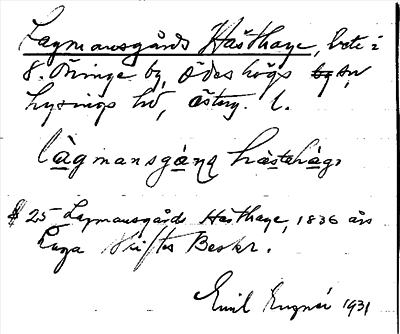 Lagmansgårds Hästhage, bete i
S. Öninge by, Ödeshögs sn,
Lysings hd, Österg. l.
lagmansgånq hästehag.
§ 25 Lagmansgårds Hästhage, 1836 års
Laga Skiftes Beskr.
Emil Engnér 1931